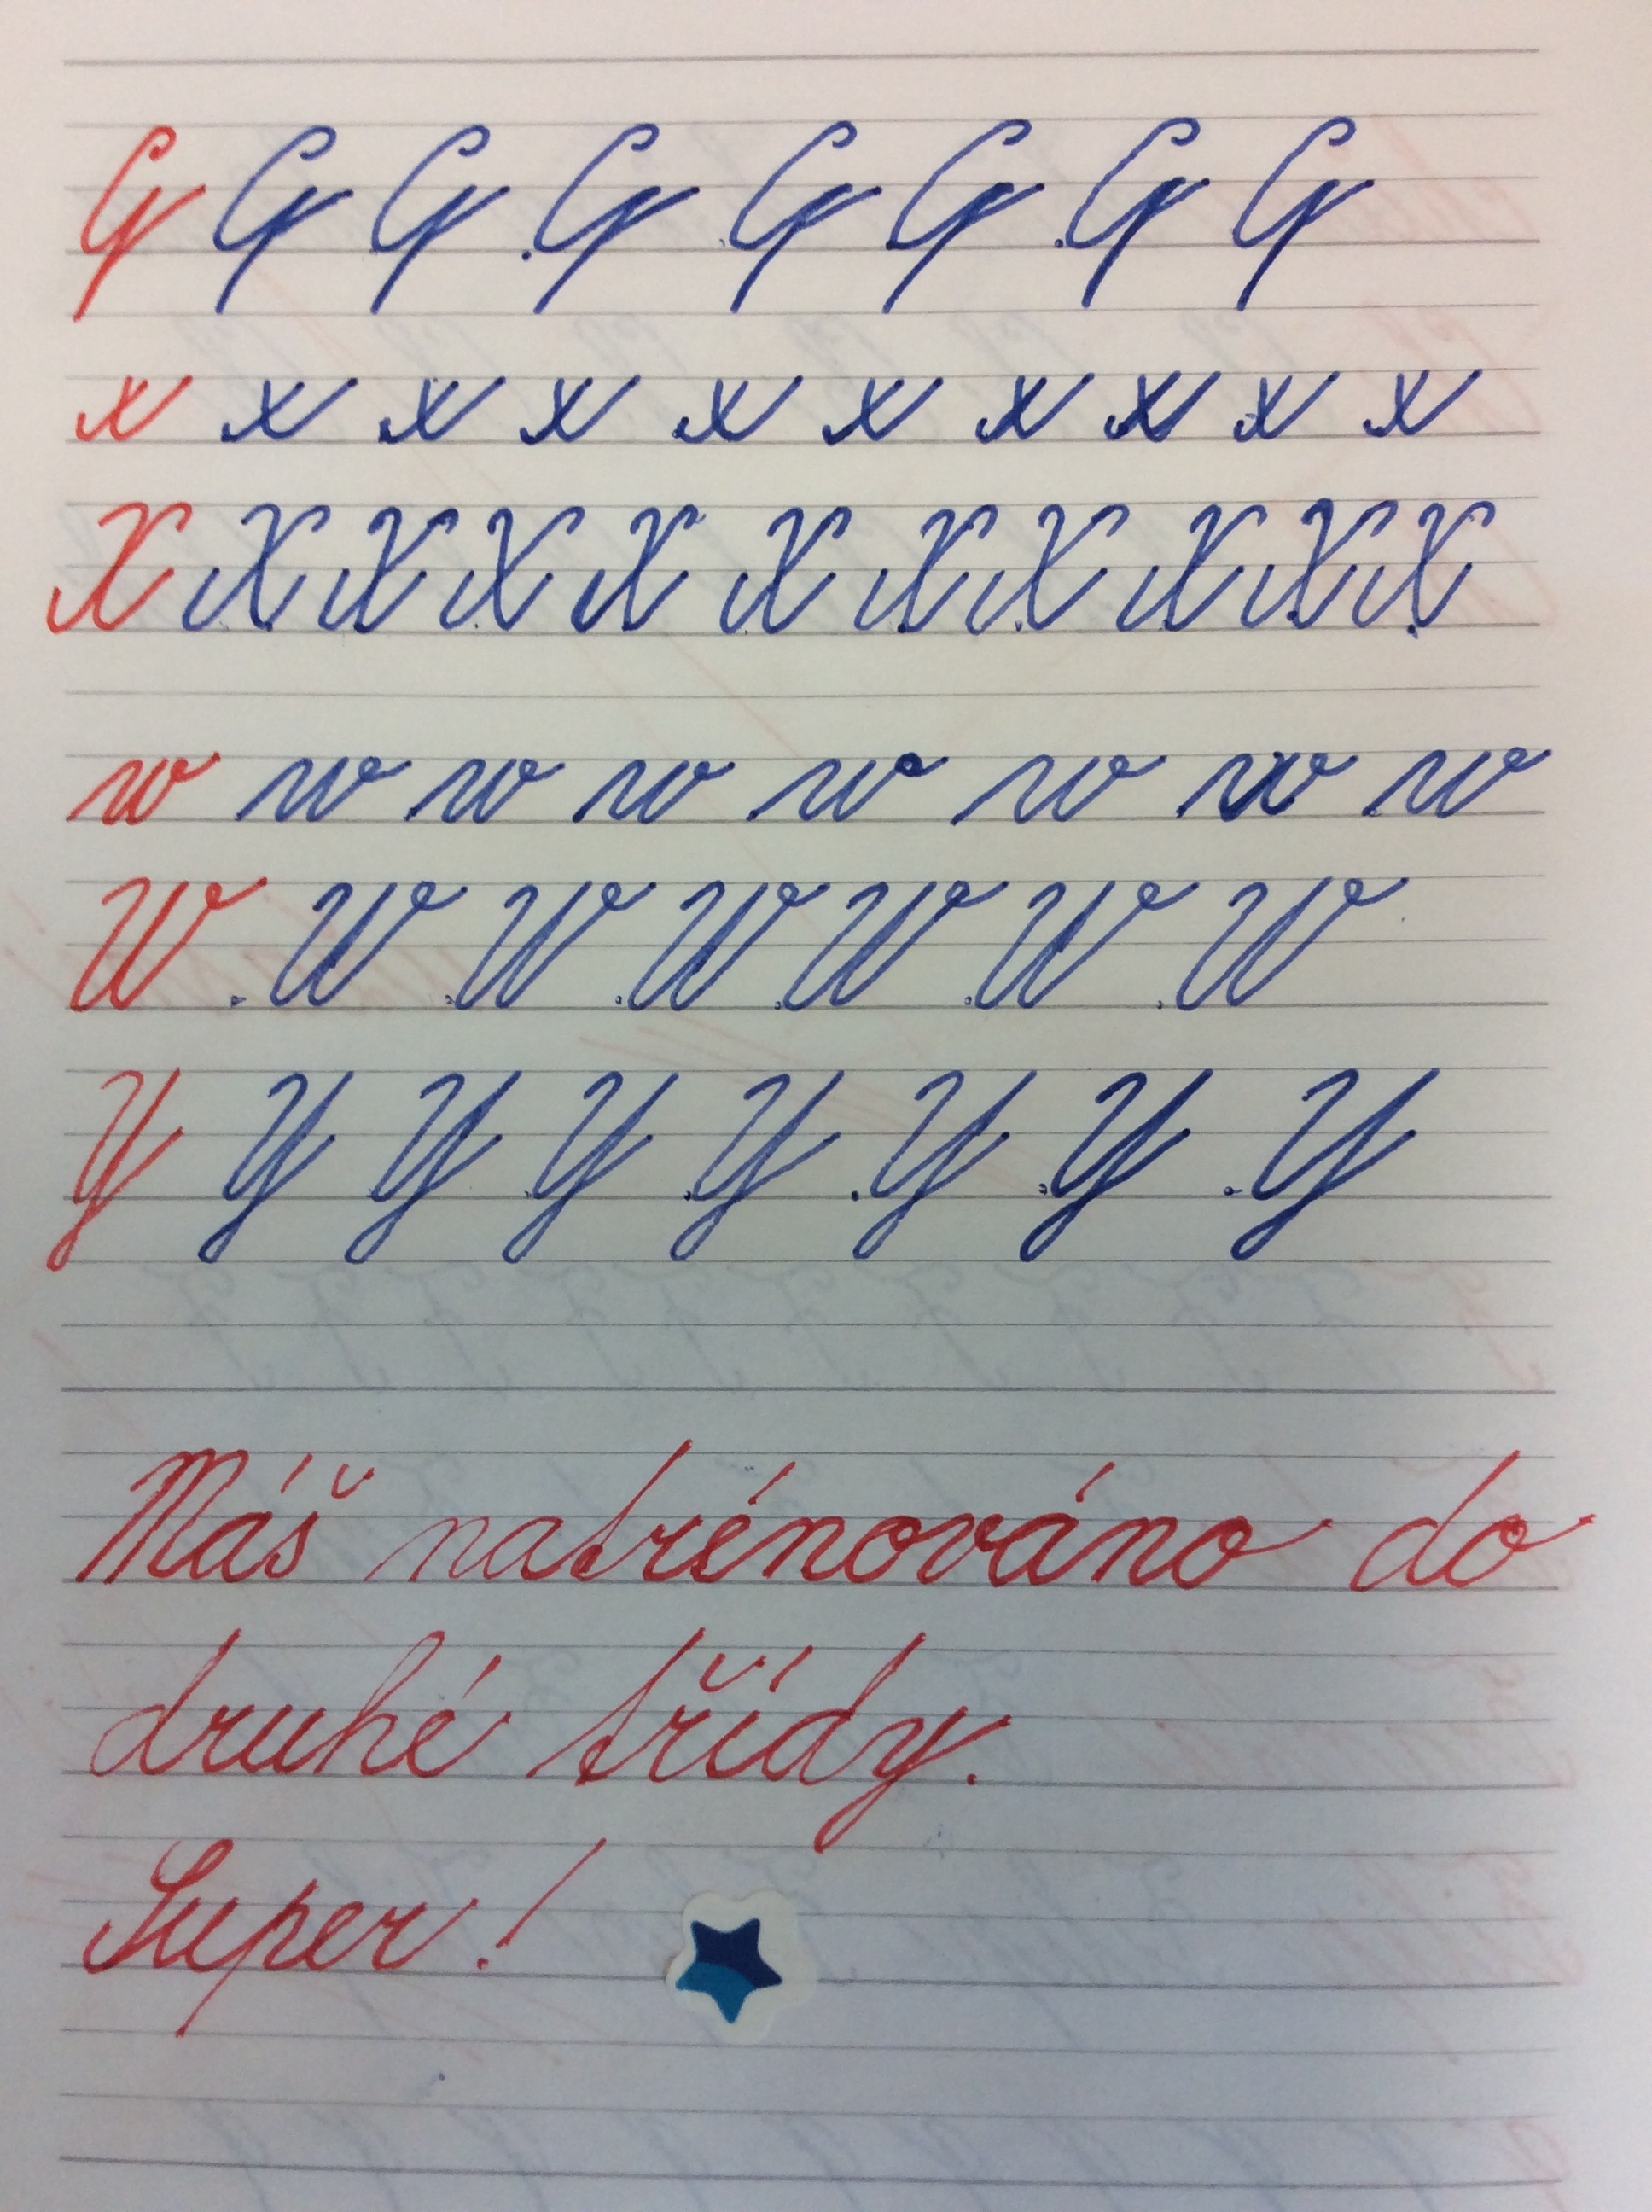 G G G G G G G G
x x x x x x x x x x
X X X X X X X X X X X
w w w w w w w w
W W W W W W W
Y Y Y Y Y Y Y Y
Máš natrénováno do
druhé třídy.
Super!